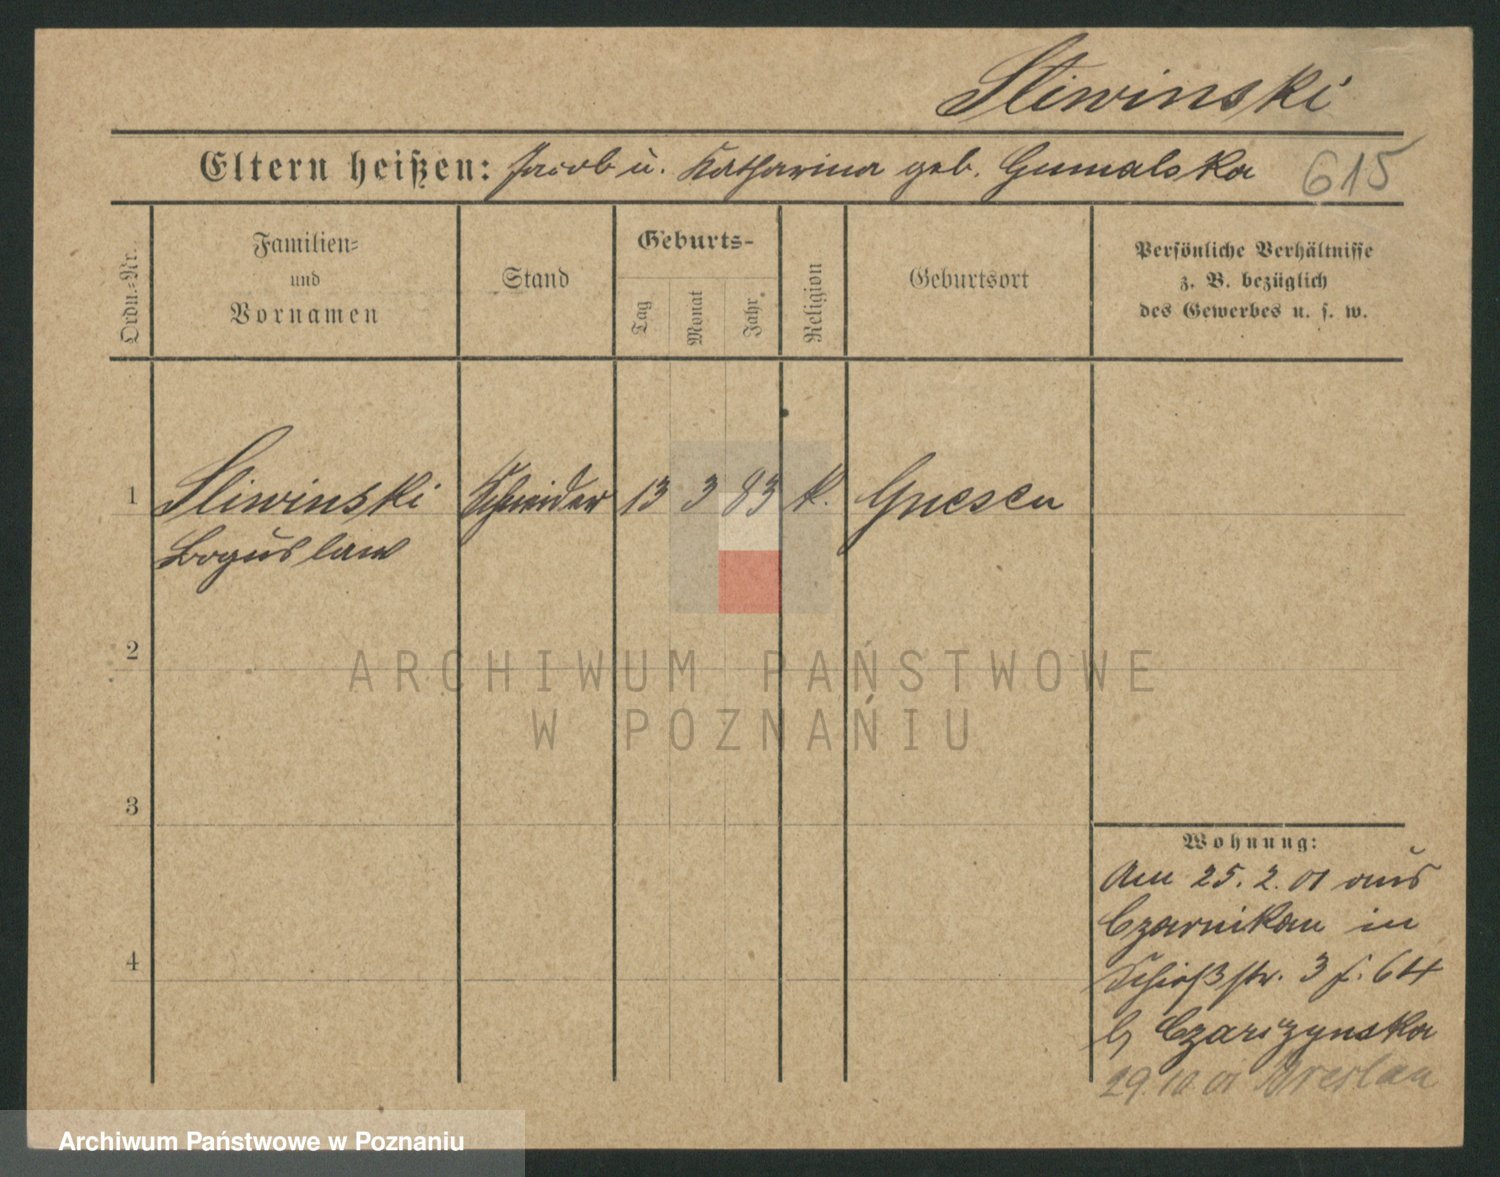 Sliwinski
Eltern heißen: Jacob u. Katharina geb. Gumalska 615
Ordn.-Nr.
Familien-
und
Vornamen
Stand
Geburts-
Tag
Monat
Jahr
Religion
Geburtsort
Persönliche Verhältnisse
z. B. bezüglich
des Gewerbes u. s. w.
1 Sliwinski Schneider 13 3 83 k. Gnesen
Boguslaw
2
3
4
Wohnung:
Am 25. 2. 01 aus
Czarnikau in
Schießstr. 3 f. 64
b/ Czarczynska
29.10.01 Breslau
ARCHIWUM PAŃSTWOWE
W POZNANIU
Archiwum Państwowe w Poznaniu